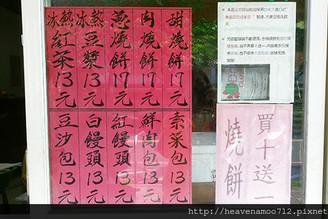 甜燒餅17元
肉燒餅17元
蔥燒餅17元
冰熱豆漿13元
冰熱紅茶13元
素菜包13元
鮮肉包13元
紅饅頭13元
白饅頭13元
豆沙包13元
買十送一
燒餅
http://heavenamoo712.pixnet